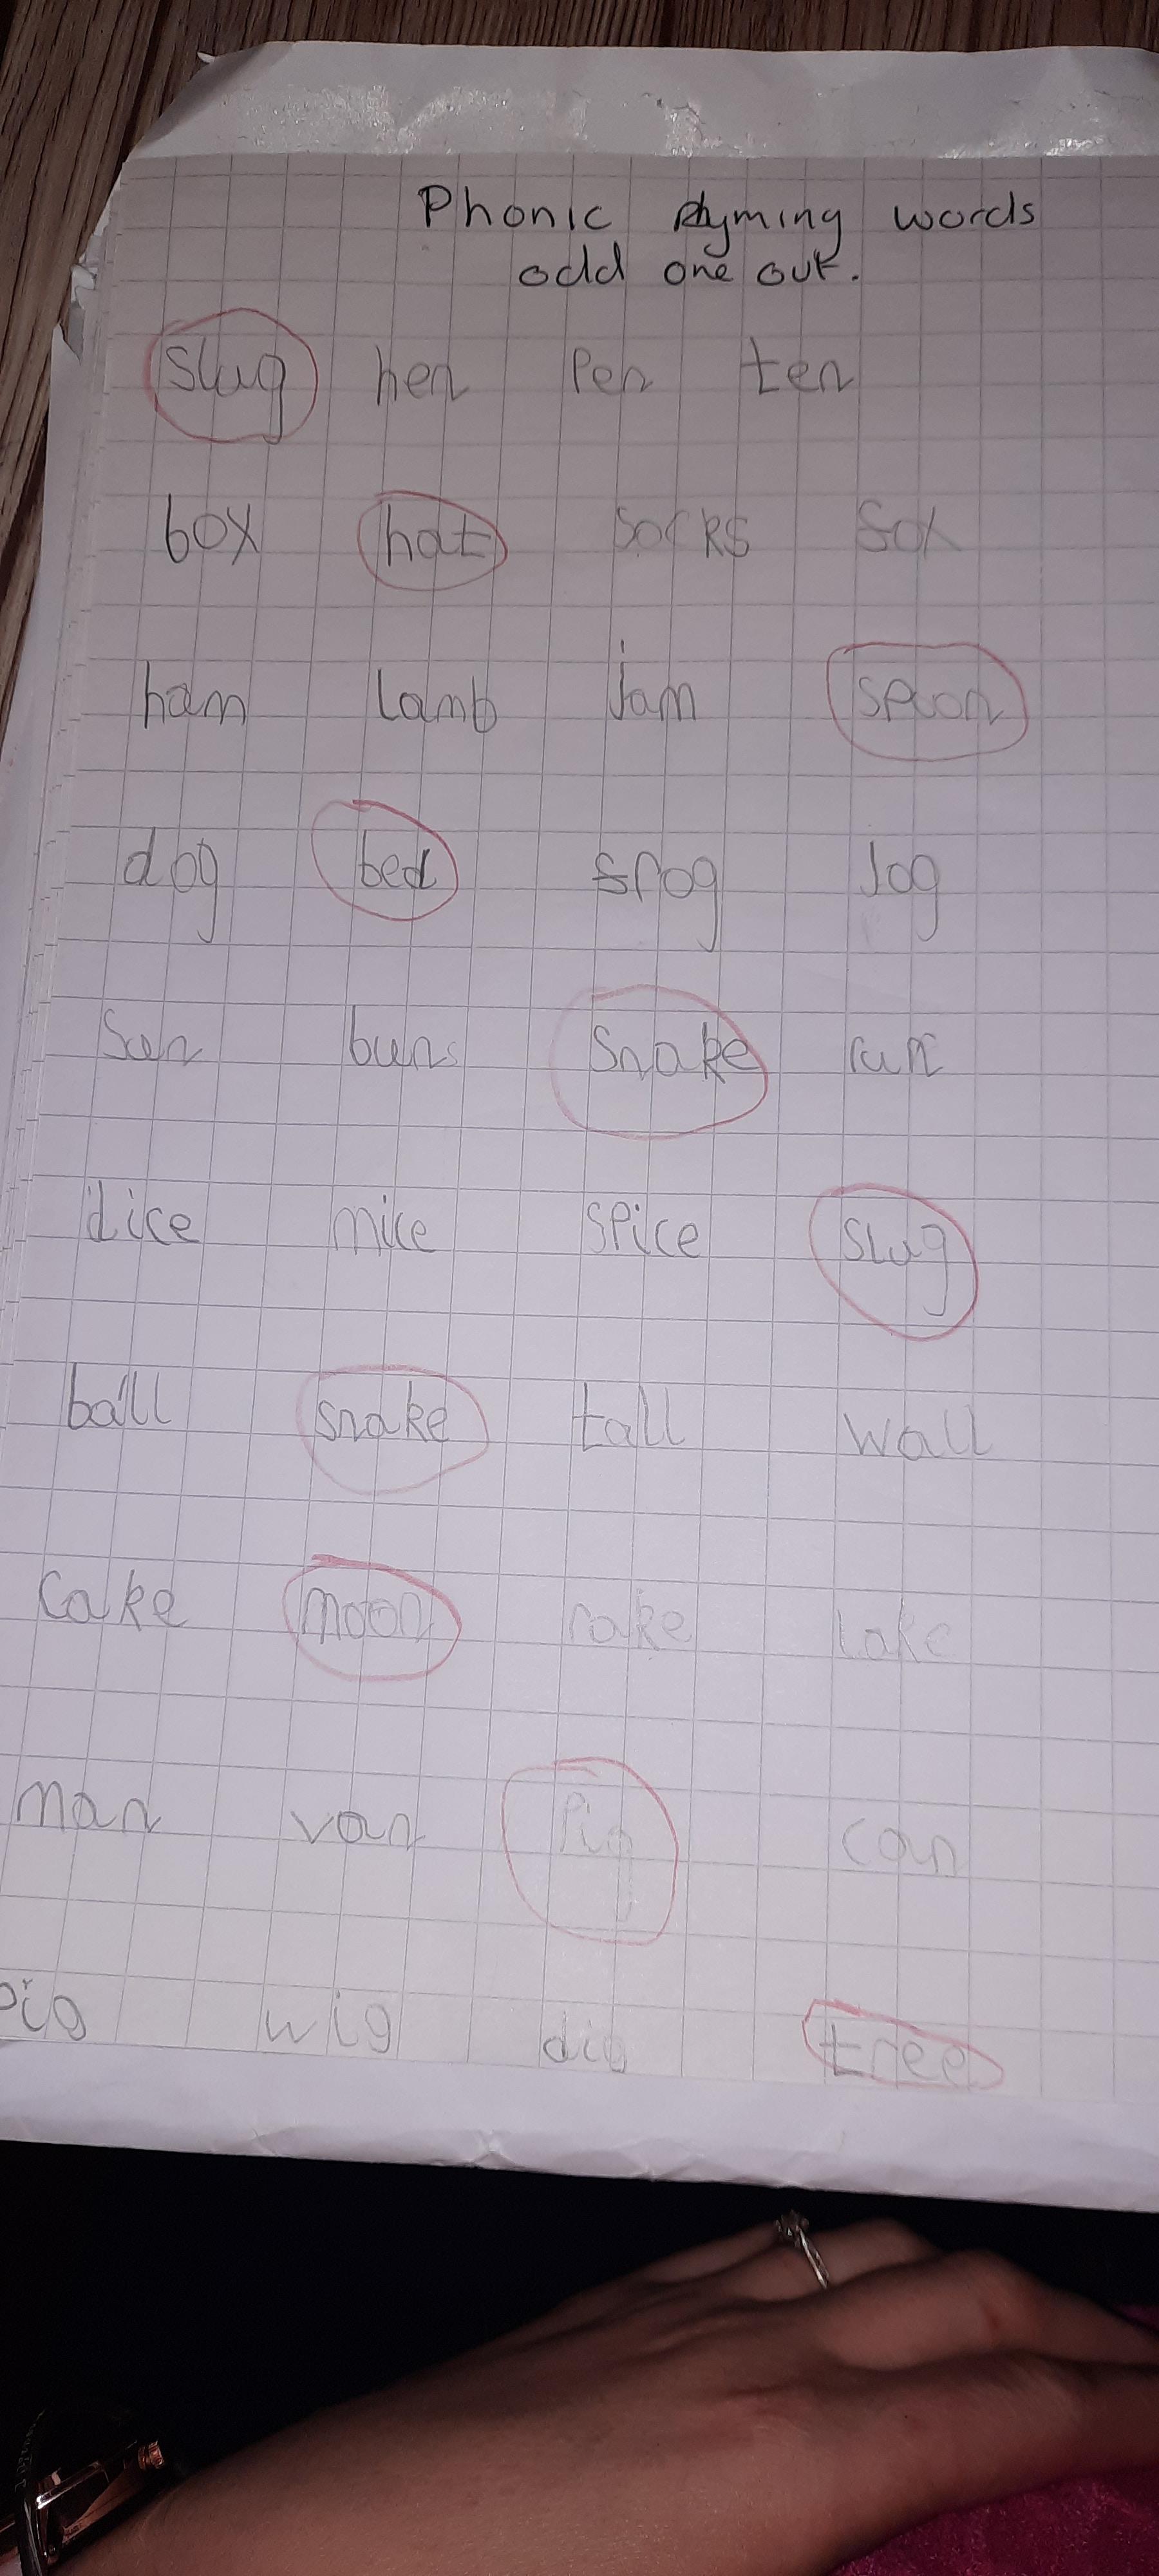 Phonic Rhyming words
odd one out.
slug hen Pen ten
box hat socks
ham lamb jam spoon
dog bed frog log
Sun buns snake run
dice mice spice slug
ball snake tall wall
Cake moon rake lake
man van Pig can
pig wig dig tree